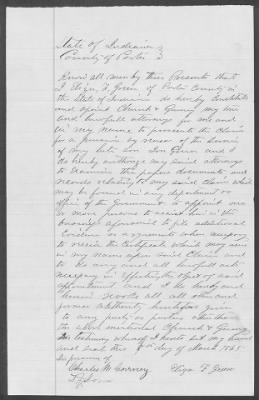 State of Indiana
County of Porter
Know all men by these Presents that
I Eliza F. Green of Porter County in
the State of Indiana do hereby Constitute
and appoint Church & my true
and lawful attorneys for me and
in my name to prosecute the Claim
for a pension by reason of the service
of my late son Green and I
do hereby authorize my said attorneys
to Examine the papers documents and
records relating to my said Claim which
may be found in any department or
office of the Government to appoint one
or more persons to assist in the
aforesaid to file additional
Evidence or argument when necessary
to receive the Certificate which may issue
in my name upon said Claim and
to do any and all lawful acts
necessary in Effecting the object of said
appointment and I do hereby
revoke all other and
former
to any party or parties other than
the above mentioned Church &
In testimony whereof I hereto set my hand
and seal this day of March 1865
In presence of
Charles M. Eliza F. Green